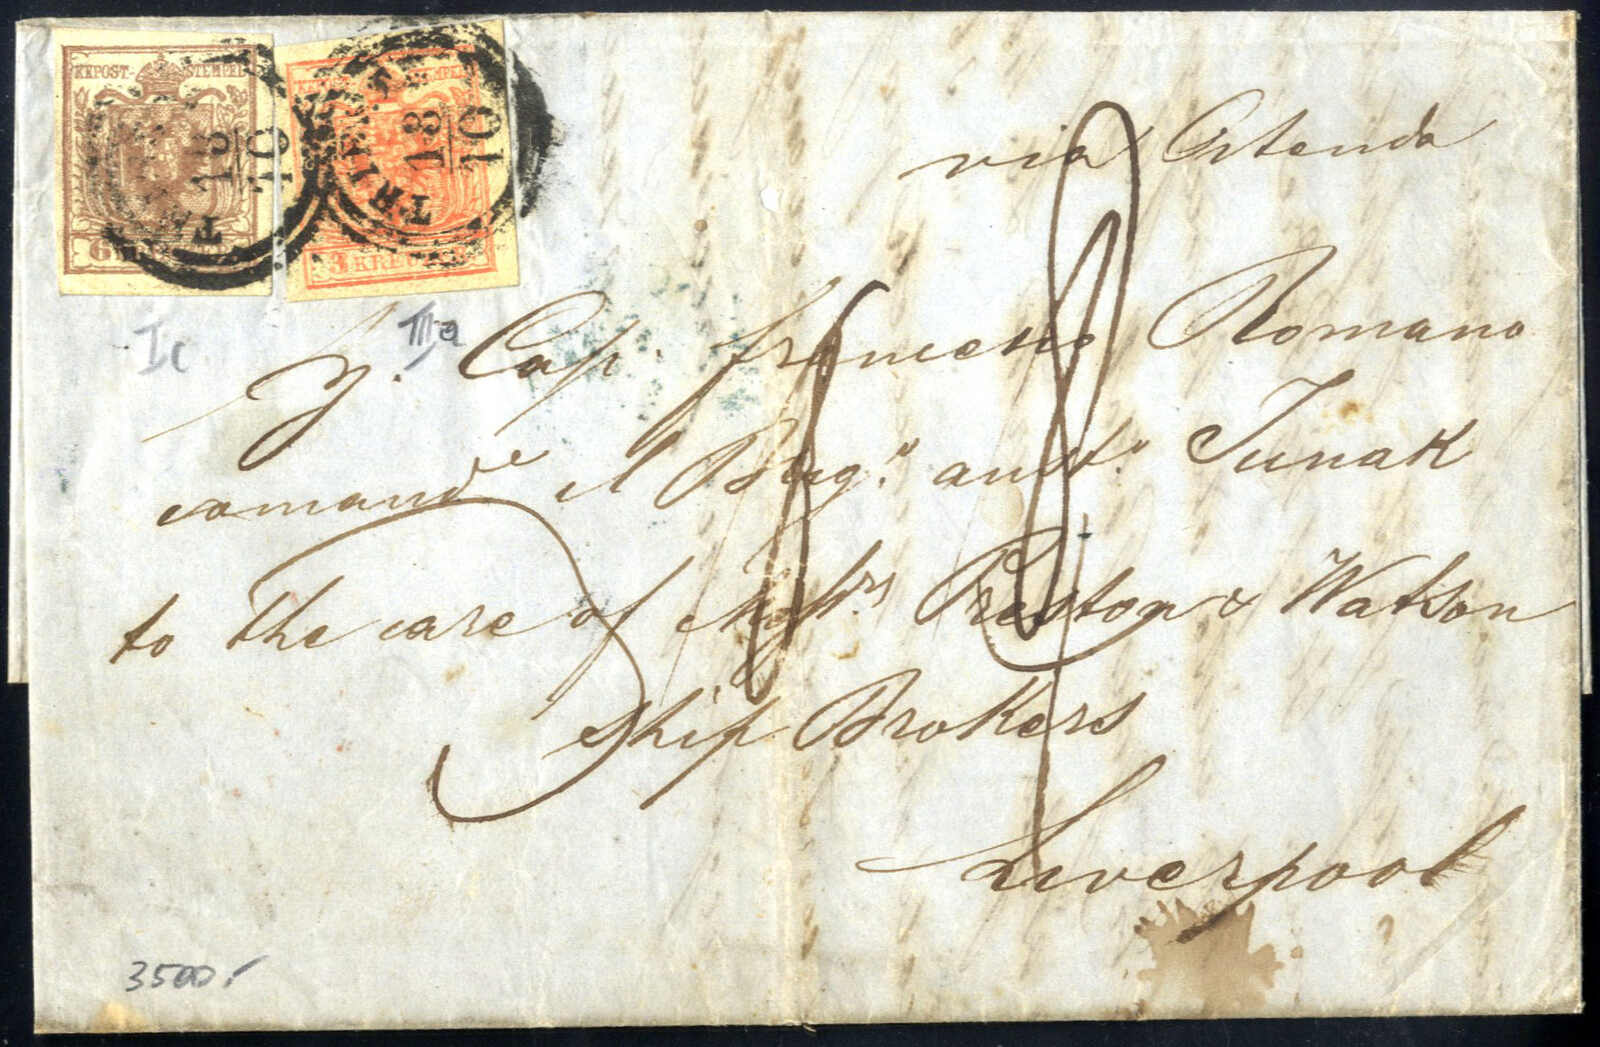 KKPOST-STEMPEL
6 KREUZER
TRIEST
18
10
KKPOST-STEMPEL
3 KREUZER
TRIEST
18
10
via Ostenda
Ic
IIIa
Cap. francesco Romano
comande il Brig. aust. Junak
to the care of Mess.rs Preston & Watson
Ship Brokers
Liverpool
3500.-